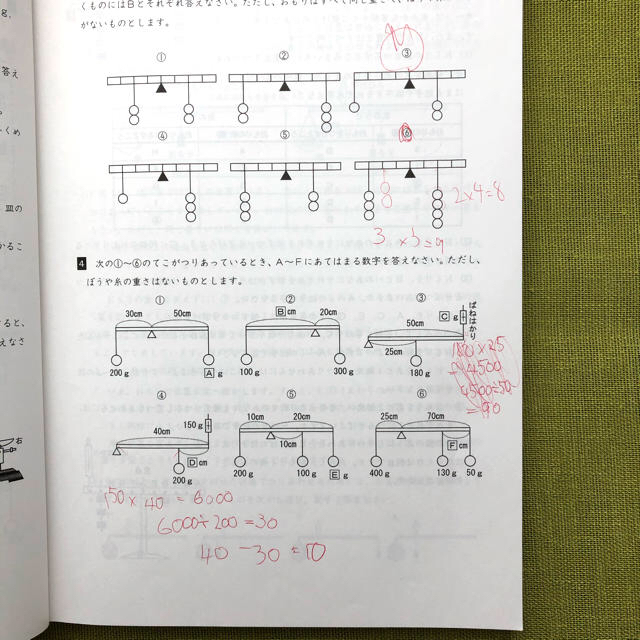 くものには日とそれぞれ答えなさい。ただし、おもりはすべて同じ重さで、
がないものとします。
① ② ③
④ ⑤ ⑥
2×4=8
3×3=9
4 次の①~⑥のてこがつりあっているとき、A~Fにあてはまる数字を答えなさい。ただし、
ぼうや糸の重さはないものとします。
① ② ③
30cm 50cm
200g A g
B cm 20cm
100g 300g
C g
ばねはかり
50cm
25cm
180g
180×25
=4500
4500÷50
=90
④ ⑤ ⑥
150g
40cm
D cm
200g
10cm 20cm
10cm
200g 100g E g
25cm 70cm
F cm
400g 130g 50g
150×40=6000
6000÷200=30
40-30=10
g,
答え
くめ
皿の
かるこ
すると、
えなさ
右